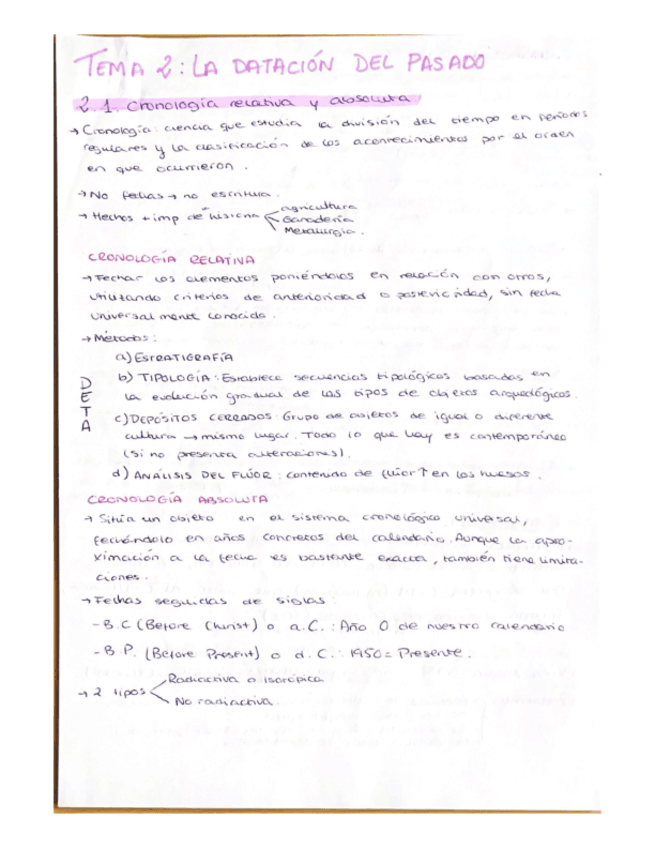 TEMA 2: LA DATACIÓN DEL PASADO
2.1. Cronología relativa y absoluta
→ Cronología: ciencia que estudia la división del tiempo en periodos
regulares y la clasificación de los acontecimientos por el orden
en que ocurrieron.
→ No fechas → no escritura.
→ Hechos + imp de historia
agricultura
Ganadería
Metalurgia.
CRONOLOGÍA RELATIVA
→ Fechar los elementos poniéndolos en relación con otros,
utilizando criterios de anterioridad o posterioridad, sin fecha
universalmente conocida.
→ Métodos:
a) ESTRATIGRAFÍA
b) TIPOLOGÍA: Establece secuencias tipológicas basadas en
la evolución gradual de los tipos de objetos arqueológicos.
c) DEPÓSITOS CERRADOS: Grupo de objetos de igual o diferente
cultura → mismo lugar. Todo lo que hay es contemporáneo
(si no presenta alteraciones).
d) ANÁLISIS DEL FLÚOR: contenido de flúor ↑ en los huesos.
DETA
CRONOLOGÍA ABSOLUTA
→ Sitúa un objeto en el sistema cronológico universal,
fechándolo en años concretos del calendario. Aunque la apro-
ximación a la fecha es bastante exacta, también tiene limita-
ciones.
→ Fechas seguidas de siglas:
- B.C (Before Christ) o a.C.: Año 0 de nuestro calendario
- B.P. (Before Present) o d.C.: 1950 = Presente.
→ 2 tipos
Radiactiva o Isotópica
No radiactiva.